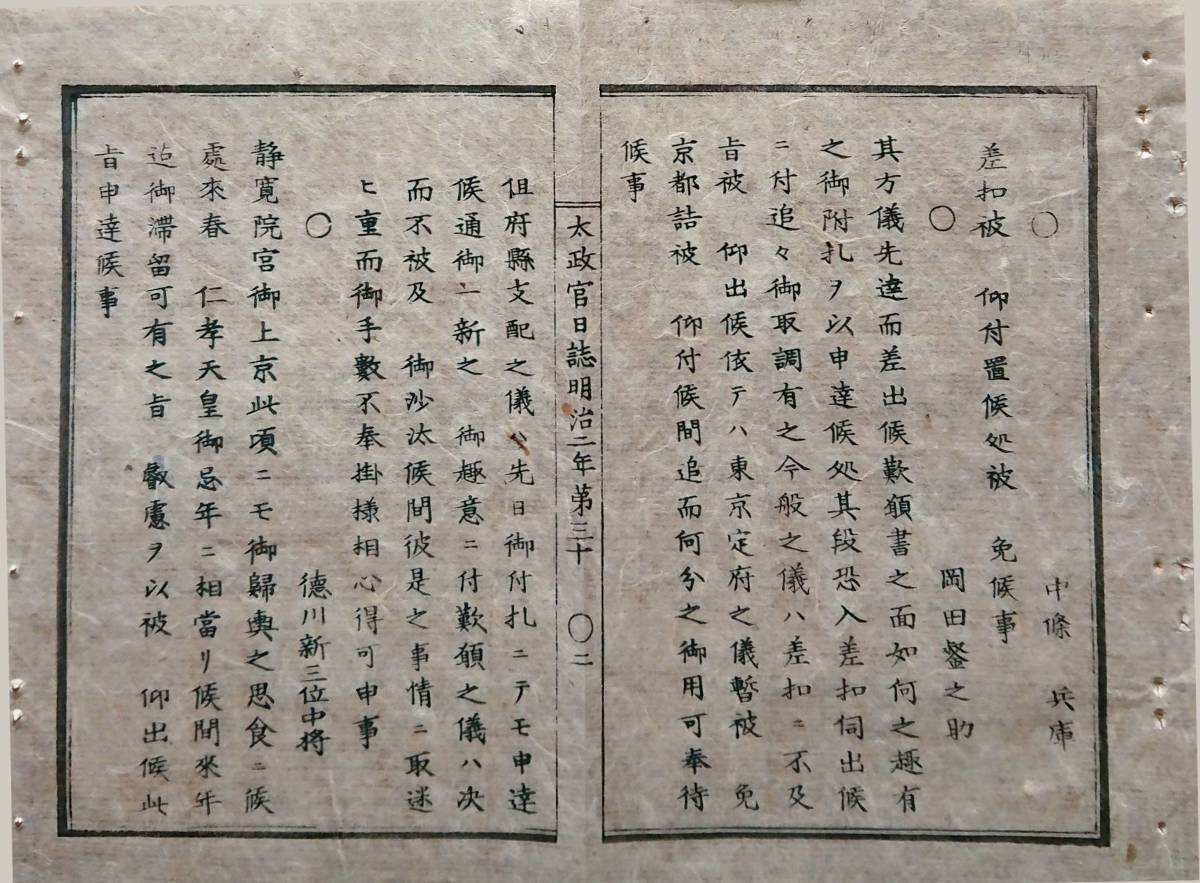 ○　中條　兵庫
差扣被　仰付置候処被　免候事
○　岡田之助
其方儀先達而差出候歎願書之面如何之趣有
之御附札ヲ以申達候処其段恐入差扣伺出候
ニ付追々御取調有之今般之儀ハ差扣ニ不及
旨被　仰出候依テハ東京定府之儀暫被　免
京都詰被　仰付候間追而何分之御用可奉待
候事
太政官日誌明治二年第三十　○二
但府縣支配之儀ハ先日御付札ニテモ申達
候通御一新之　御趣意ニ付歎願之儀ハ決
而不被及　御沙汰候間彼是之事情ニ取迷
ヒ重而御手數不奉掛様相心得可申事
○　徳川新三位中将
静寛院宮御上京此頃ニモ御歸輿之思食ニ候
處來春　仁孝天皇御忌年ニ相當リ候間來年
迠御滞留可有之旨　叡慮ヲ以被　仰出候此
旨申達候事